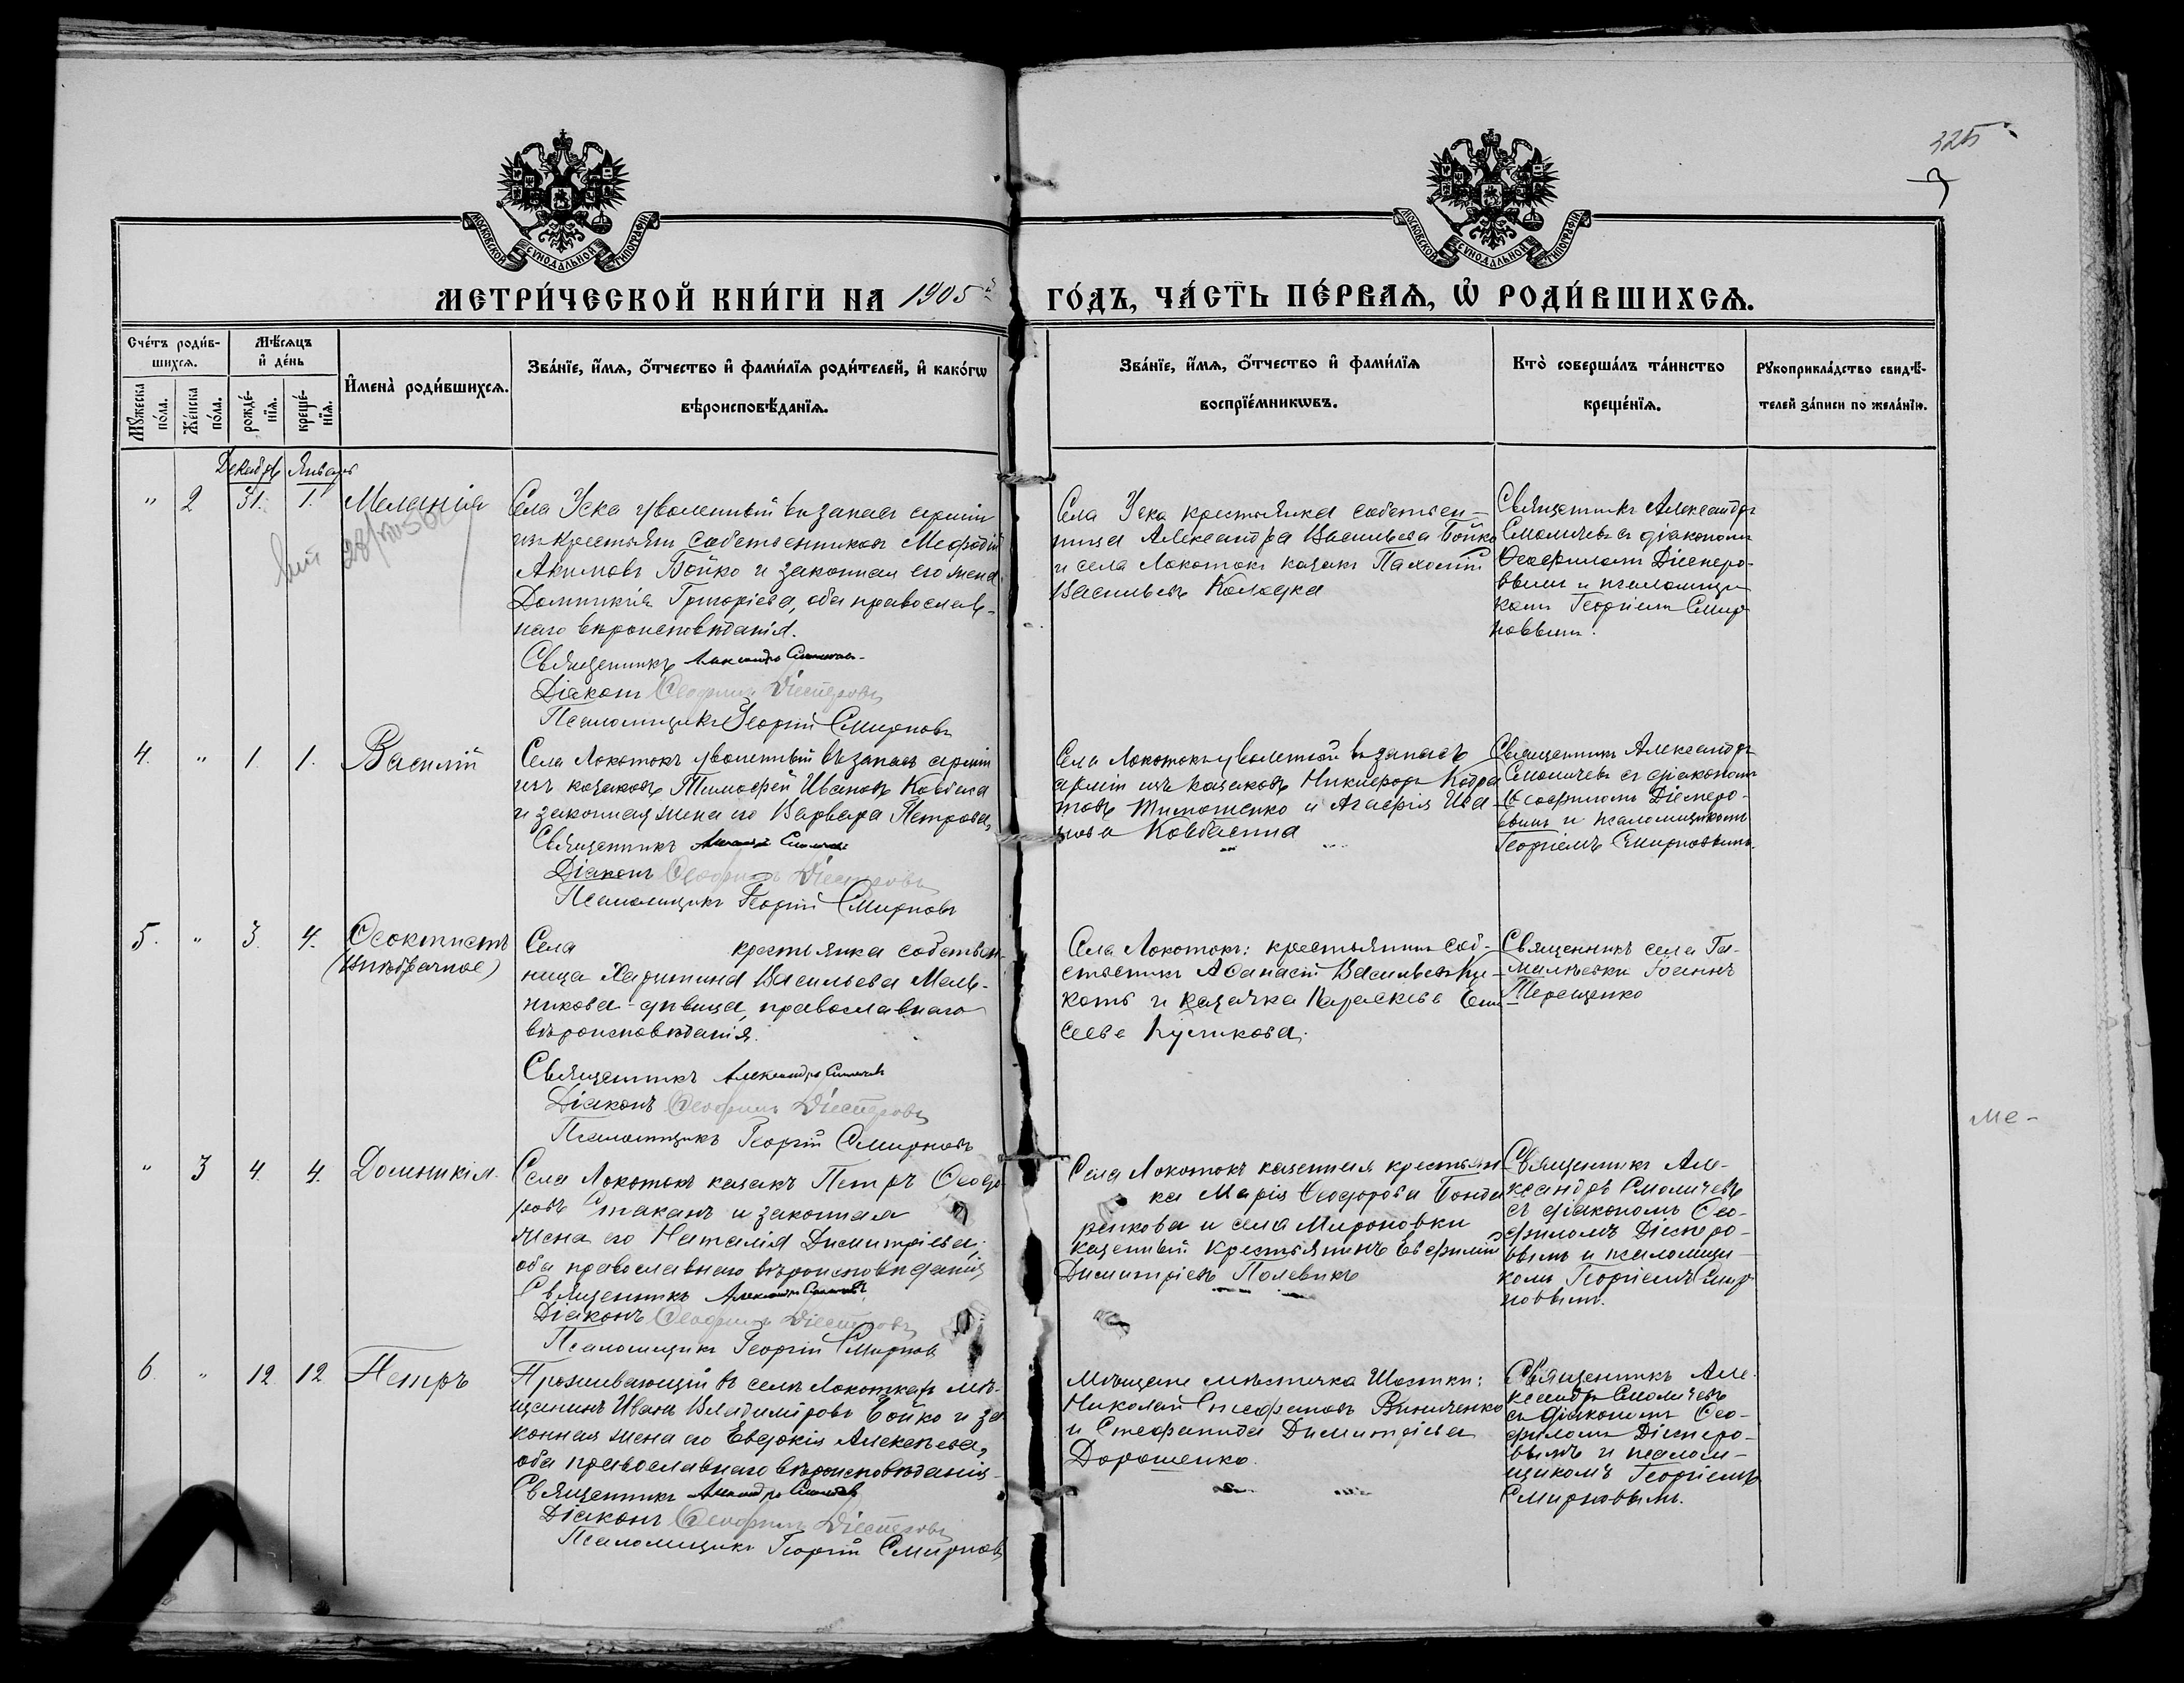 325
МОСКОВСКОЙ СѴНОДАЛЬНОЙ ТИПОГРАФІИ
МОСКОВСКОЙ СѴНОДАЛЬНОЙ ТИПОГРАФІИ
МЕТРИ́ЧЕСКОЙ КНИ́ГИ НА 1905й
ГО́ДЪ, ЧА́СТЬ ПЕ́РВАѦ, Ѡ҆ РОДИ́ВШИХСѦ.
Сче́тъ роди́в-
шихсѧ.
Мѣ́сѧцъ
и҆ де́нь
Мꙋ́жеска
по́ла.
Же́нска
по́ла.
рожде́-
нїѧ.
креще́-
нїѧ.
И҆мена̀ роди́вшихсѧ.
Зва́нїе, и҆́мѧ, ѻ҆́тчество и҆ фами́лїѧ роди́телей, и҆ како́гѡ
вѣроисповѣ́данїѧ.
Зва́нїе, и҆́мѧ, ѻ҆́тчество и҆ фами́лїѧ
воспрїе́мникѡвъ.
Кто̀ соверша́лъ та́инство
креще́нїѧ.
Рꙋкоприкла́дство свидѣ́-
телей за́писи по жела́нїю.
Декабрь Январь
" 2 31. 1. Меланія
Села Уска уволенный въ запасъ арміи
изъ крестьянъ собственниковъ Мефодій
Акимовъ Бойко и законная его жена
Домникія Григоріева, оба православ-
наго вѣроисповѣданія.
Священникъ Александръ Смоличевъ
Діаконъ Ѳеофилъ Діесперовъ
Псаломщикъ Георгій Смирновъ
Села Уска крестьянка собствен-
ница Александра Васильева Бойко
и села Локотокъ казакъ Пахомій
Васильевъ Колодка
Священникъ Александръ
Смоличевъ съ діакономъ
Ѳеофиломъ Діесперо-
вымъ и псаломщи-
комъ Георгіемъ Смир-
новымъ.
4. " 1. 1. Василій
Села Локотокъ уволенный въ запасъ арміи
изъ казаковъ Тимофей Ивановъ Ковбаса
и законная жена его Варвара Петрова,
Священникъ Александръ Смоличевъ
Діаконъ Ѳеофилъ Діесперовъ
Псаломщикъ Георгій Смирновъ
Села Локотокъ уволенной въ запасъ
арміи изъ казаковъ Никифоръ Кодра-
товъ Тимошенко и Агафія Ива-
нова Ковбасина
Священникъ Александръ
Смоличевъ съ діакономъ
Ѳеофиломъ Діесперо-
вымъ и псаломщикомъ
Георгіемъ Смирновымъ.
5. " 3. 4. Ѳеоктистъ
(внѣбрачное)
Села крестьянка собствен-
ница Харитина Васильева Мель-
никова-дѣвица, православнаго
вѣроисповѣданія.
Священникъ Александръ Смоличевъ
Діаконъ Ѳеофилъ Діесперовъ
Псаломщикъ Георгій Смирновъ
Села Локотокъ: крестьянинъ соб-
ственникъ Аѳанасій Васильевъ Ку-
котъ и казачка Параскева Ели-
сеева Куликова.
Священникъ села Га-
малѣевки Іоаннъ
Терещенко
ме-
" 3 4. 4. Домникія.
Села Локотокъ казакъ Петръ Ѳеодо-
ровъ Стаканъ и законная
жена его Наталія Димитріева;
оба православнаго вѣроисповѣданія
Священникъ Александръ Смоличевъ
Діаконъ Ѳеофилъ Діесперовъ
Псаломщикъ Георгій Смирновъ
Села Локотокъ казенная крестьян-
ка Марія Ѳеодорова Бонда-
ренкова и села Мироновки
казенный крестьянинъ Евфимій
Димитріевъ Полевикъ
Священникъ Але-
ксандръ Смоличевъ
съ діакономъ Ѳео-
филомъ Діесперо-
вымъ и псаломщи-
комъ Георгіемъ Смир-
новымъ.
6. " 12 12 Петръ
Проживающій въ селѣ Локоткахъ мѣ-
щанинъ Иванъ Владиміровъ Бойко и за-
конная жена его Евдокія Алексѣева,
оба православнаго вѣроисповѣданія.
Священникъ Александръ Смоличевъ
Діаконъ Ѳеофилъ Діесперовъ
Псаломщикъ Георгій Смирновъ
Мѣщане мѣстечка Шостки:
Николай Стефановъ Винниченко
и Стефанида Димитріева
Дорошенко.
Священникъ Але-
ксандръ Смоличевъ
съ діакономъ Ѳео-
филомъ Діесперо-
вымъ и псалом-
щикомъ Георгіемъ
Смирновымъ.